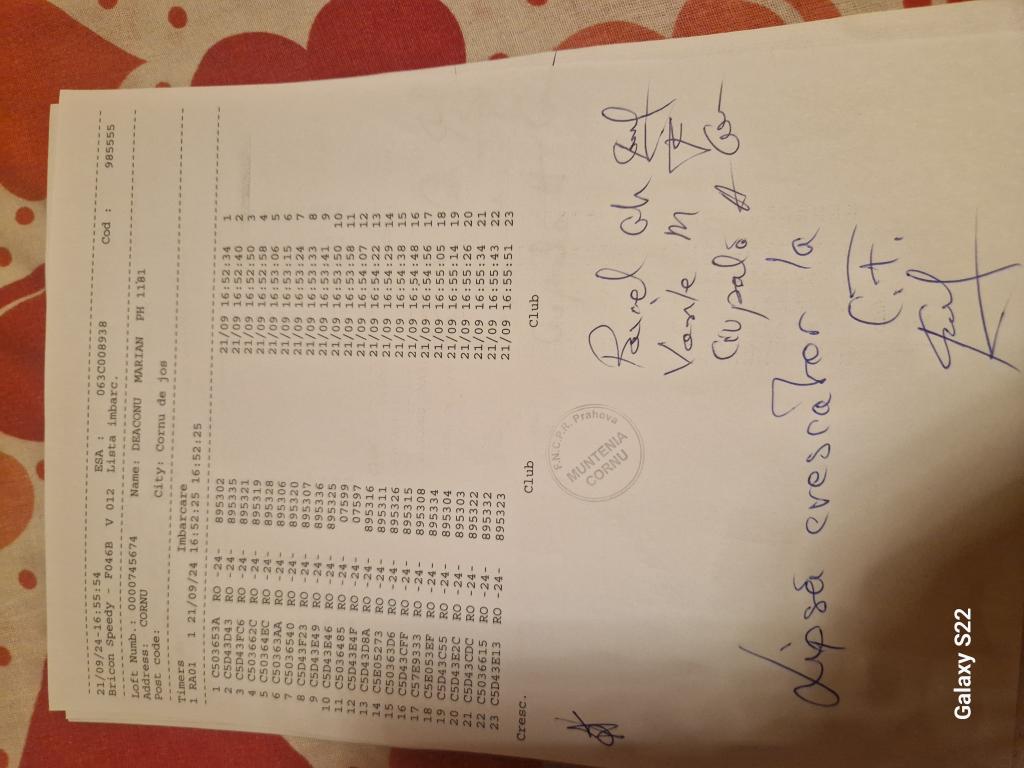 21/09/24-16:55:54 ESA : 063C008938 Cod : 985555
Bricon Speedy - F046B V 012 Lista imbarc.
Loft Numb.: 0000745674 Name: DEACONU MARIAN PH 1181
Address: CORNU
Post code: City: Cornu de jos
Timers Imbarcare
1 RA01 1 21/09/24 16:52:25 16:52:25
1 C503653A RO -24- 895302 21/09 16:52:34 1
2 C5D43D43 RO -24- 895335 21/09 16:52:40 2
3 C5D43FC6 RO -24- 895321 21/09 16:52:50 3
4 C503662C RO -24- 895319 21/09 16:52:58 4
5 C50364EC RO -24- 895328 21/09 16:53:06 5
6 C50363AA RO -24- 895306 21/09 16:53:15 6
7 C5036540 RO -24- 895320 21/09 16:53:24 7
8 C5D43F23 RO -24- 895307 21/09 16:53:33 8
9 C5D43E49 RO -24- 895336 21/09 16:53:41 9
10 C5D43E46 RO -24- 895325 21/09 16:53:50 10
11 C5036485 RO -24- 07599 21/09 16:53:58 11
12 C5D43E4F RO -24- 07597 21/09 16:54:07 12
13 C5D43D8A RO -24- 895316 21/09 16:54:22 13
14 C5E05273 RO -24- 895311 21/09 16:54:29 14
15 C50363D6 RO -24- 895326 21/09 16:54:38 15
16 C5D43CFF RO -24- 895315 21/09 16:54:48 16
17 C57E9333 RO -24- 895308 21/09 16:54:56 17
18 C5E053EF RO -24- 895334 21/09 16:55:05 18
19 C5D43C55 RO -24- 895304 21/09 16:55:14 19
20 C5D43E2C RO -24- 895303 21/09 16:55:26 20
21 C5D43CDC RO -24- 895322 21/09 16:55:34 21
22 C5036615 RO -24- 895332 21/09 16:55:41 22
23 C5D43E13 RO -24- 895323 21/09 16:55:51 23
Cresc. Club Club
F.N.C.P.R. Prahova
MUNTENIA
CORNU
Gh
Vasile M
Ciupală A
Lipsă crescător la
C.T.
Galaxy S22